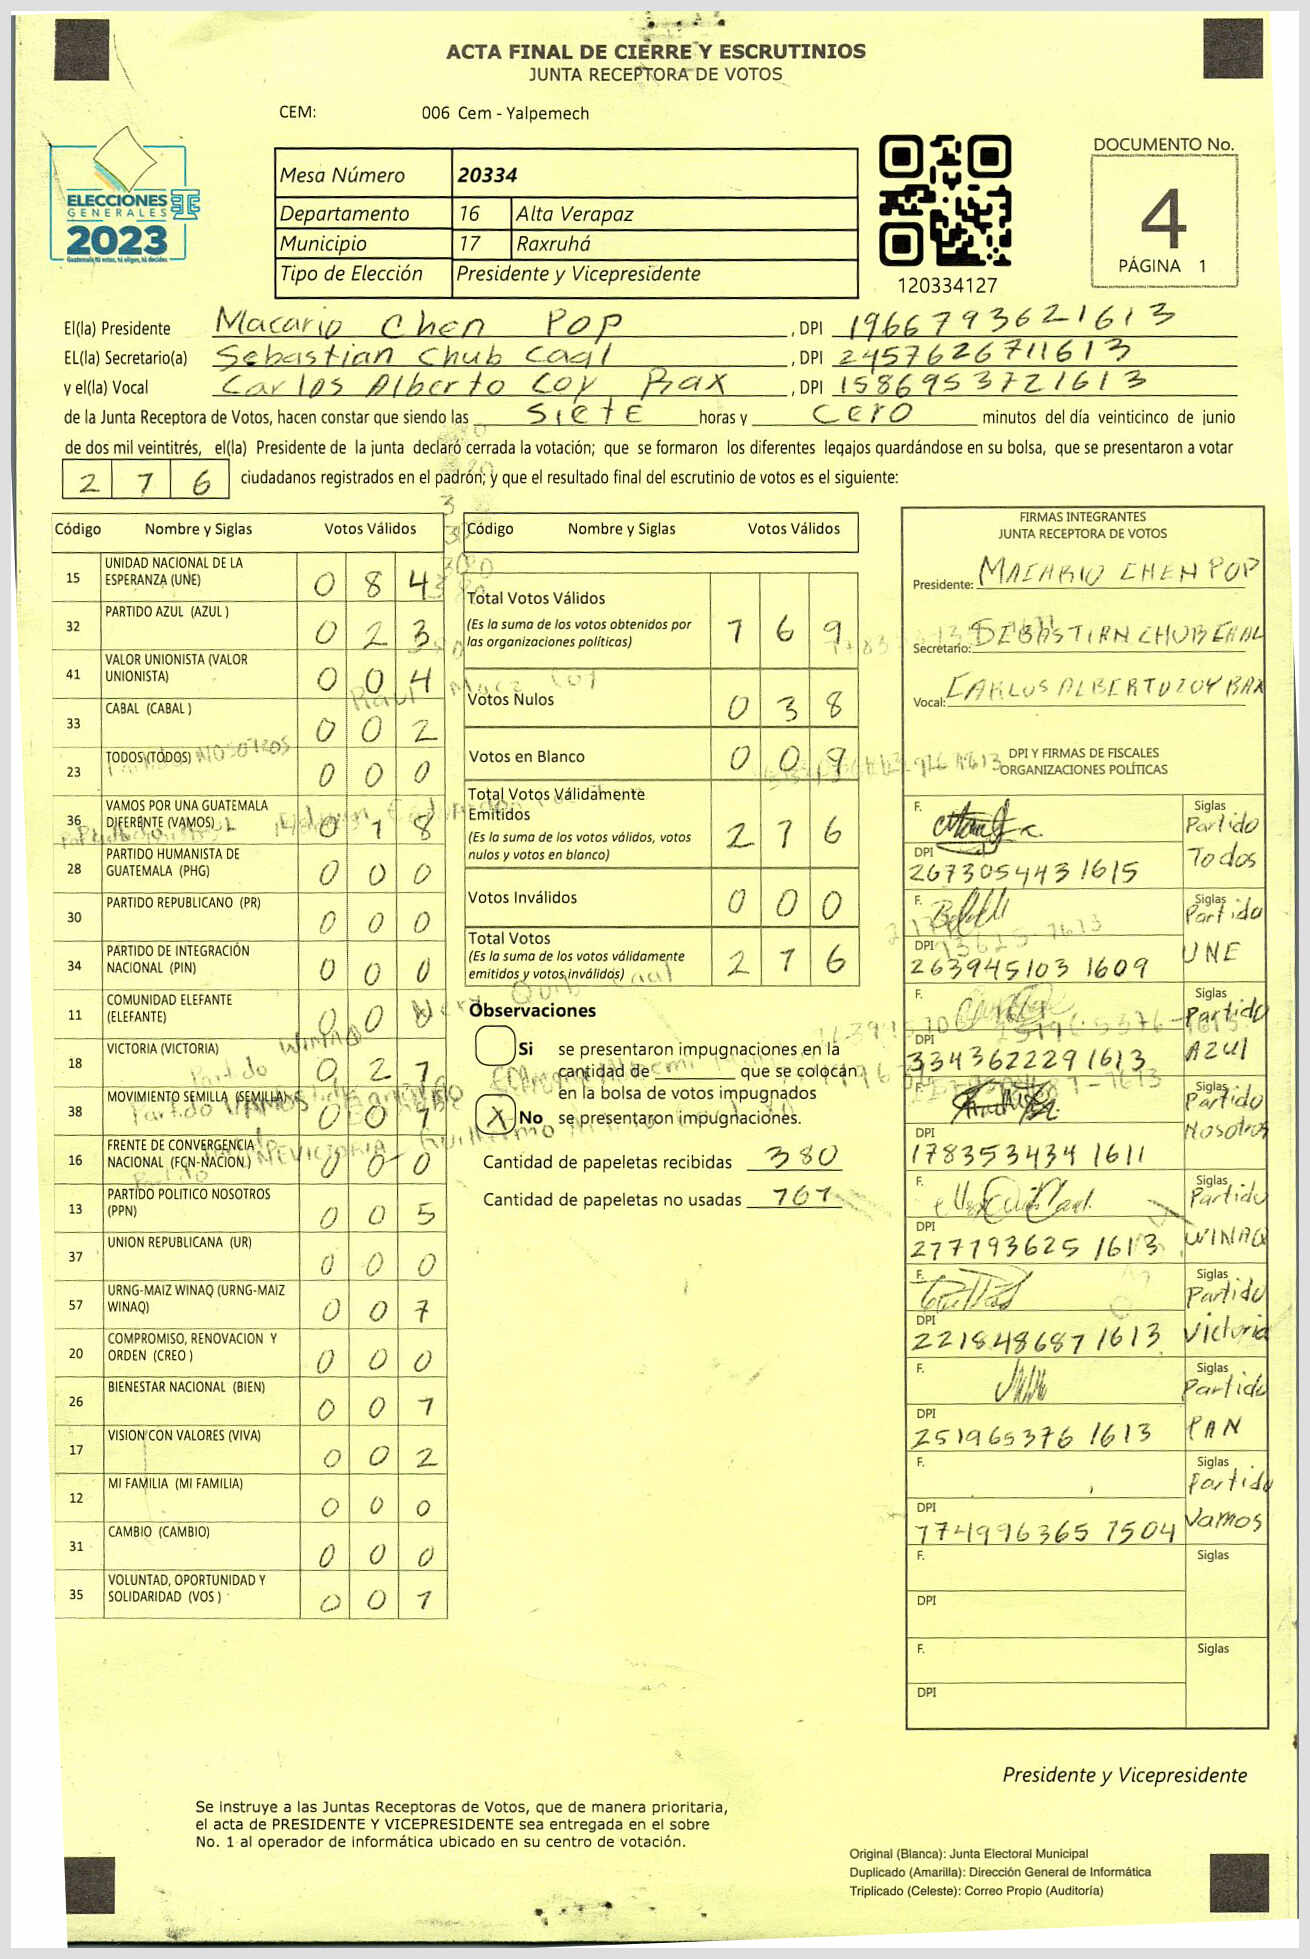 ACTA FINAL DE CIERRE Y ESCRUTINIOS
JUNTA RECEPTORA DE VOTOS
CEM: 006 Cem - Yalpemech
ELECCIONES
GENERALES
2023
Guatemala tú votas, tú eliges, tú decides
Mesa Número 20334
Departamento 16 Alta Verapaz
Municipio 17 Raxruhá
Tipo de Elección Presidente y Vicepresidente
120334127
DOCUMENTO No.
4
PÁGINA 1
El(la) Presidente Macario Chen Pop, DPI 1966793621613
EL(la) Secretario(a) Sebastian Chub Caal, DPI 2457626711613
y el(la) Vocal Carlos Alberto Coy Rax, DPI 1586953721613
de la Junta Receptora de Votos, hacen constar que siendo las SieTE horas y Cero minutos del día veinticinco de junio
de dos mil veintitrés, el(la) Presidente de la junta declaró cerrada la votación; que se formaron los diferentes legajos guardándose en su bolsa, que se presentaron a votar
2 7 6 ciudadanos registrados en el padrón; y que el resultado final del escrutinio de votos es el siguiente:
Código Nombre y Siglas Votos Válidos
15 UNIDAD NACIONAL DE LA ESPERANZA (UNE) 0 8 4
32 PARTIDO AZUL (AZUL ) 0 2 3
41 VALOR UNIONISTA (VALOR UNIONISTA) 0 0 4
33 CABAL (CABAL ) 0 0 2
23 TODOS (TODOS) 0 0 0
36 VAMOS POR UNA GUATEMALA DIFERENTE (VAMOS) 0 1 8
28 PARTIDO HUMANISTA DE GUATEMALA (PHG) 0 0 0
30 PARTIDO REPUBLICANO (PR) 0 0 0
34 PARTIDO DE INTEGRACIÓN NACIONAL (PIN) 0 0 0
11 COMUNIDAD ELEFANTE (ELEFANTE) 0 0 0
18 VICTORIA (VICTORIA) 0 2 1
38 MOVIMIENTO SEMILLA (SEMILLA) 0 0 1
16 FRENTE DE CONVERGENCIA NACIONAL (FCN-NACION ) 0 0 0
13 PARTIDO POLITICO NOSOTROS (PPN) 0 0 5
37 UNION REPUBLICANA (UR) 0 0 0
57 URNG-MAIZ WINAQ (URNG-MAIZ WINAQ) 0 0 7
20 COMPROMISO, RENOVACION Y ORDEN (CREO ) 0 0 0
26 BIENESTAR NACIONAL (BIEN) 0 0 1
17 VISION CON VALORES (VIVA) 0 0 2
12 MI FAMILIA (MI FAMILIA) 0 0 0
31 CAMBIO (CAMBIO) 0 0 0
35 VOLUNTAD, OPORTUNIDAD Y SOLIDARIDAD (VOS ) 0 0 1
Código Nombre y Siglas Votos Válidos
Total Votos Válidos 1 6 9
(Es la suma de los votos obtenidos por
las organizaciones políticas)
Votos Nulos 0 3 8
Votos en Blanco 0 0 9
Total Votos Válidamente
Emitidos 2 1 6
(Es la suma de los votos válidos, votos
nulos y votos en blanco)
Votos Inválidos 0 0 0
Total Votos 2 1 6
(Es la suma de los votos válidamente
emitidos y votos inválidos)
Observaciones
Si se presentaron impugnaciones en la
cantidad de ________ que se colocán
en la bolsa de votos impugnados
X No se presentaron impugnaciones.
Cantidad de papeletas recibidas 380
Cantidad de papeletas no usadas
FIRMAS INTEGRANTES
JUNTA RECEPTORA DE VOTOS
Presidente: MACARIO CHEN POP
Secretario: SEBASTIAN CHUB CAAL
Vocal: CARLOS ALBERTO COY RAX
DPI Y FIRMAS DE FISCALES
ORGANIZACIONES POLÍTICAS
F. Siglas Partido Todos
DPI 267305443 1615
F. Siglas Partido UNE
DPI 263945103 1609
F. Siglas Partido AZUl
DPI 334362229 1613
F. Siglas Partido Nosotros
DPI 178353434 1611
F. Siglas Partido WINAQ
DPI 277793625 1613
F. Siglas Partido Victoria
DPI 221848687 1613
F. Siglas Partido PAN
DPI 251965376 1613
F. Siglas Partido Vamos
DPI 174996365 1504
F. Siglas
DPI
F. Siglas
DPI
Presidente y Vicepresidente
Se instruye a las Juntas Receptoras de Votos, que de manera prioritaria,
el acta de PRESIDENTE Y VICEPRESIDENTE sea entregada en el sobre
No. 1 al operador de informática ubicado en su centro de votación.
Original (Blanca): Junta Electoral Municipal
Duplicado (Amarilla): Dirección General de Informática
Triplicado (Celeste): Correo Propio (Auditoría)